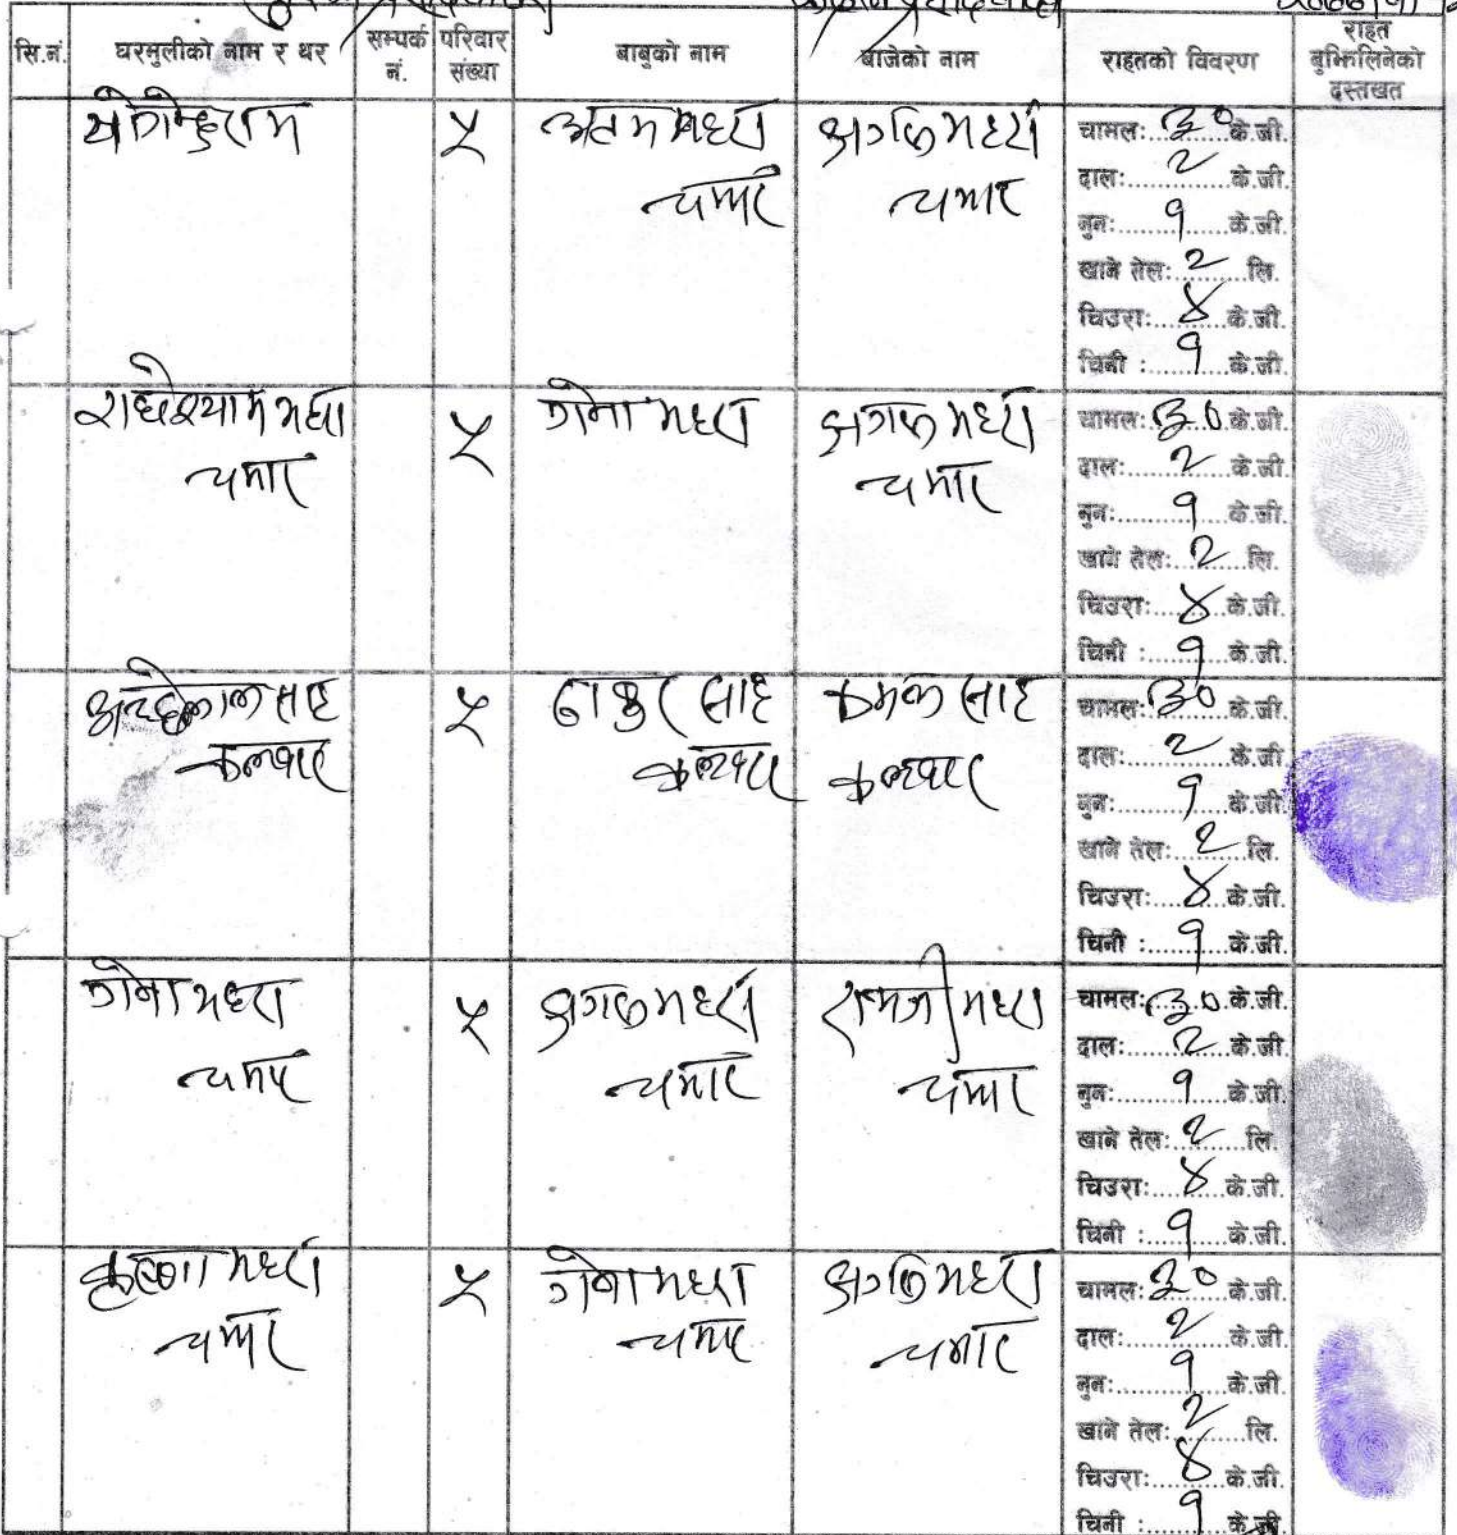 सि.नं. घरमुलीको नाम र थर सम्पर्क नं. परिवार संख्या बाबुको नाम बाजेको नाम राहतको विवरण राहत बुझिलिनेको दस्तखत
योगेन्द्र राम ५
चमार चमार
चामल: ३० के.जी.
दाल: २ के.जी.
नुन: १ के.जी.
खाने तेल: २ लि.
चिउरा: ४ के.जी.
चिनी : १ के.जी.
राधेश्याम महरा ५ गेना महरा महरा
चमार चमार
चामल: ३० के.जी.
दाल: २ के.जी.
नुन: १ के.जी.
खाने तेल: २ लि.
चिउरा: ४ के.जी.
चिनी : १ के.जी.
अच्छेलाल साह ५ ठाकुर साह साह
कलवार कलवार कलवार
चामल: ३० के.जी.
दाल: २ के.जी.
नुन: १ के.जी.
खाने तेल: २ लि.
चिउरा: ४ के.जी.
चिनी : १ के.जी.
गेना महरा ५ महरा रामजी महरा
चमार चमार चमार
चामल: ३० के.जी.
दाल: २ के.जी.
नुन: १ के.जी.
खाने तेल: २ लि.
चिउरा: ४ के.जी.
चिनी : १ के.जी.
कृष्णा महरा ५ गेना महरा महरा
चमार चमार चमार
चामल: ३० के.जी.
दाल: २ के.जी.
नुन: १ के.जी.
खाने तेल: २ लि.
चिउरा: ४ के.जी.
चिनी : १ के.जी.